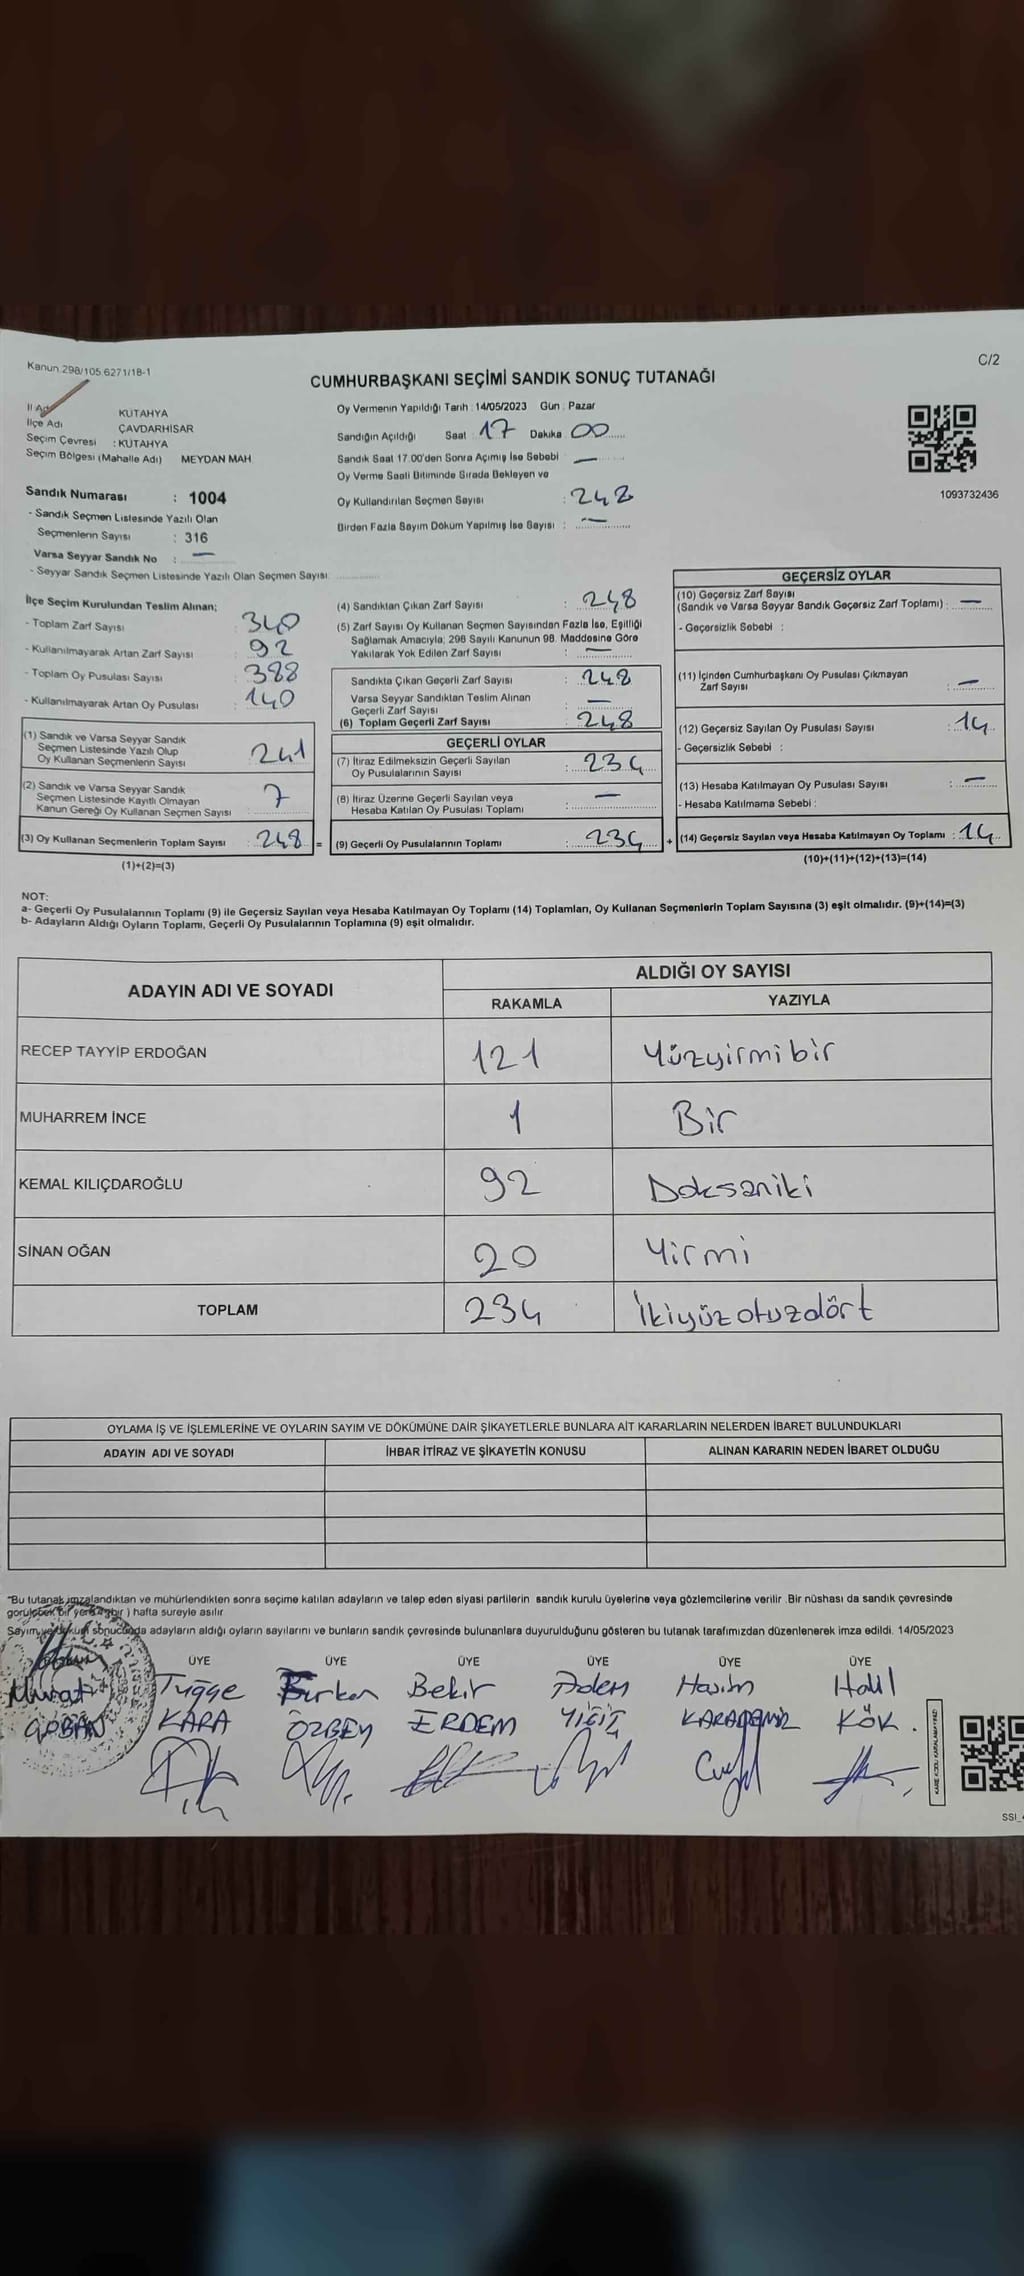 Kanun 298/105.6271/18-1
C/2
CUMHURBAŞKANI SEÇİMİ SANDIK SONUÇ TUTANAĞI
İl Adı KÜTAHYA
İlçe Adı ÇAVDARHİSAR
Seçim Çevresi : KÜTAHYA
Seçim Bölgesi (Mahalle Adı) MEYDAN MAH.
Sandık Numarası : 1004
- Sandık Seçmen Listesinde Yazılı Olan
Seçmenlerin Sayısı : 316
Varsa Seyyar Sandık No : —
- Seyyar Sandık Seçmen Listesinde Yazılı Olan Seçmen Sayısı
Oy Vermenin Yapıldığı Tarih : 14/05/2023 Gün : Pazar
Sandığın Açıldığı Saat 17 Dakika 00
Sandık Saat 17.00'den Sonra Açımış İse Sebebi —
Oy Verme Saati Bitiminde Sırada Bekleyen ve
Oy Kullandırılan Seçmen Sayısı : 248
Birden Fazla Sayım Döküm Yapılmış İse Sayısı : —
1093732436
İlçe Seçim Kurulundan Teslim Alınan;
- Toplam Zarf Sayısı : 340
- Kullanılmayarak Artan Zarf Sayısı : 92
- Toplam Oy Pusulası Sayısı : 388
- Kullanılmayarak Artan Oy Pusulası : 140
(1) Sandık ve Varsa Seyyar Sandık
Seçmen Listesinde Yazılı Olup
Oy Kullanan Seçmenlerin Sayısı 241
(2) Sandık ve Varsa Seyyar Sandık
Seçmen Listesinde Kayıtlı Olmayan
Kanun Gereği Oy Kullanan Seçmen Sayısı : 7
(3) Oy Kullanan Seçmenlerin Toplam Sayısı : 248 =
(1)+(2)=(3)
(4) Sandıktan Çıkan Zarf Sayısı : 248
(5) Zarf Sayısı Oy Kullanan Seçmen Sayısından Fazla İse, Eşitliği
Sağlamak Amacıyla; 298 Sayılı Kanunun 98. Maddesine Göre
Yakılarak Yok Edilen Zarf Sayısı : —
Sandıkta Çıkan Geçerli Zarf Sayısı : 248
Varsa Seyyar Sandıktan Teslim Alınan
Geçerli Zarf Sayısı : —
(6) Toplam Geçerli Zarf Sayısı : 248
GEÇERLİ OYLAR
(7) İtiraz Edilmeksizin Geçerli Sayılan
Oy Pusulalarının Sayısı : 234
(8) İtiraz Üzerine Geçerli Sayılan veya
Hesaba Katılan Oy Pusulası Toplamı : —
(9) Geçerli Oy Pusulalarının Toplamı : 234 +
GEÇERSİZ OYLAR
(10) Geçersiz Zarf Sayısı
(Sandık ve Varsa Seyyar Sandık Geçersiz Zarf Toplamı) : —
- Geçersizlik Sebebi :
(11) İçinden Cumhurbaşkanı Oy Pusulası Çıkmayan
Zarf Sayısı : —
(12) Geçersiz Sayılan Oy Pusulası Sayısı : 14
- Geçersizlik Sebebi :
(13) Hesaba Katılmayan Oy Pusulası Sayısı : —
- Hesaba Katılmama Sebebi :
(14) Geçersiz Sayılan veya Hesaba Katılmayan Oy Toplamı : 14
(10)+(11)+(12)+(13)=(14)
NOT:
a- Geçerli Oy Pusulalarının Toplamı (9) ile Geçersiz Sayılan veya Hesaba Katılmayan Oy Toplamı (14) Toplamları, Oy Kullanan Seçmenlerin Toplam Sayısına (3) eşit olmalıdır. (9)+(14)=(3)
b- Adayların Aldığı Oyların Toplamı, Geçerli Oy Pusulalarının Toplamına (9) eşit olmalıdır.
ADAYIN ADI VE SOYADI ALDIĞI OY SAYISI
RAKAMLA YAZIYLA
RECEP TAYYİP ERDOĞAN 121 Yüzyirmibir
MUHARREM İNCE 1 Bir
KEMAL KILIÇDAROĞLU 92 Doksaniki
SİNAN OĞAN 20 Yirmi
TOPLAM 234 İkiyüzotuzdört
OYLAMA İŞ VE İŞLEMLERİNE VE OYLARIN SAYIM VE DÖKÜMÜNE DAİR ŞİKAYETLERLE BUNLARA AİT KARARLARIN NELERDEN İBARET BULUNDUKLARI
ADAYIN ADI VE SOYADI İHBAR İTİRAZ VE ŞİKAYETİN KONUSU ALINAN KARARIN NEDEN İBARET OLDUĞU
"Bu tutanak imzalandıktan ve mühürlendikten sonra seçime katılan adayların ve talep eden siyasi partilerin sandık kurulu üyelerine veya gözlemcilerine verilir .Bir nüshası da sandık çevresinde
görülebek bir yere 1 (bir ) hafta süreyle asılır
Sayım ve döküm sonucunda adayların aldığı oyların sayılarını ve bunların sandık çevresinde bulunanlara duyurulduğunu gösteren bu tutanak tarafımızdan düzenlenerek imza edildi. 14/05/2023
ÜYE ÜYE ÜYE ÜYE ÜYE ÜYE
Murat Tuğçe Birkan Bekir Adem Hasim Halil
ÇOBAN KARA ÖZBEY ERDEM YİĞİT KARADENİZ KÖK
KARE KODU KARALAMAYINIZ!